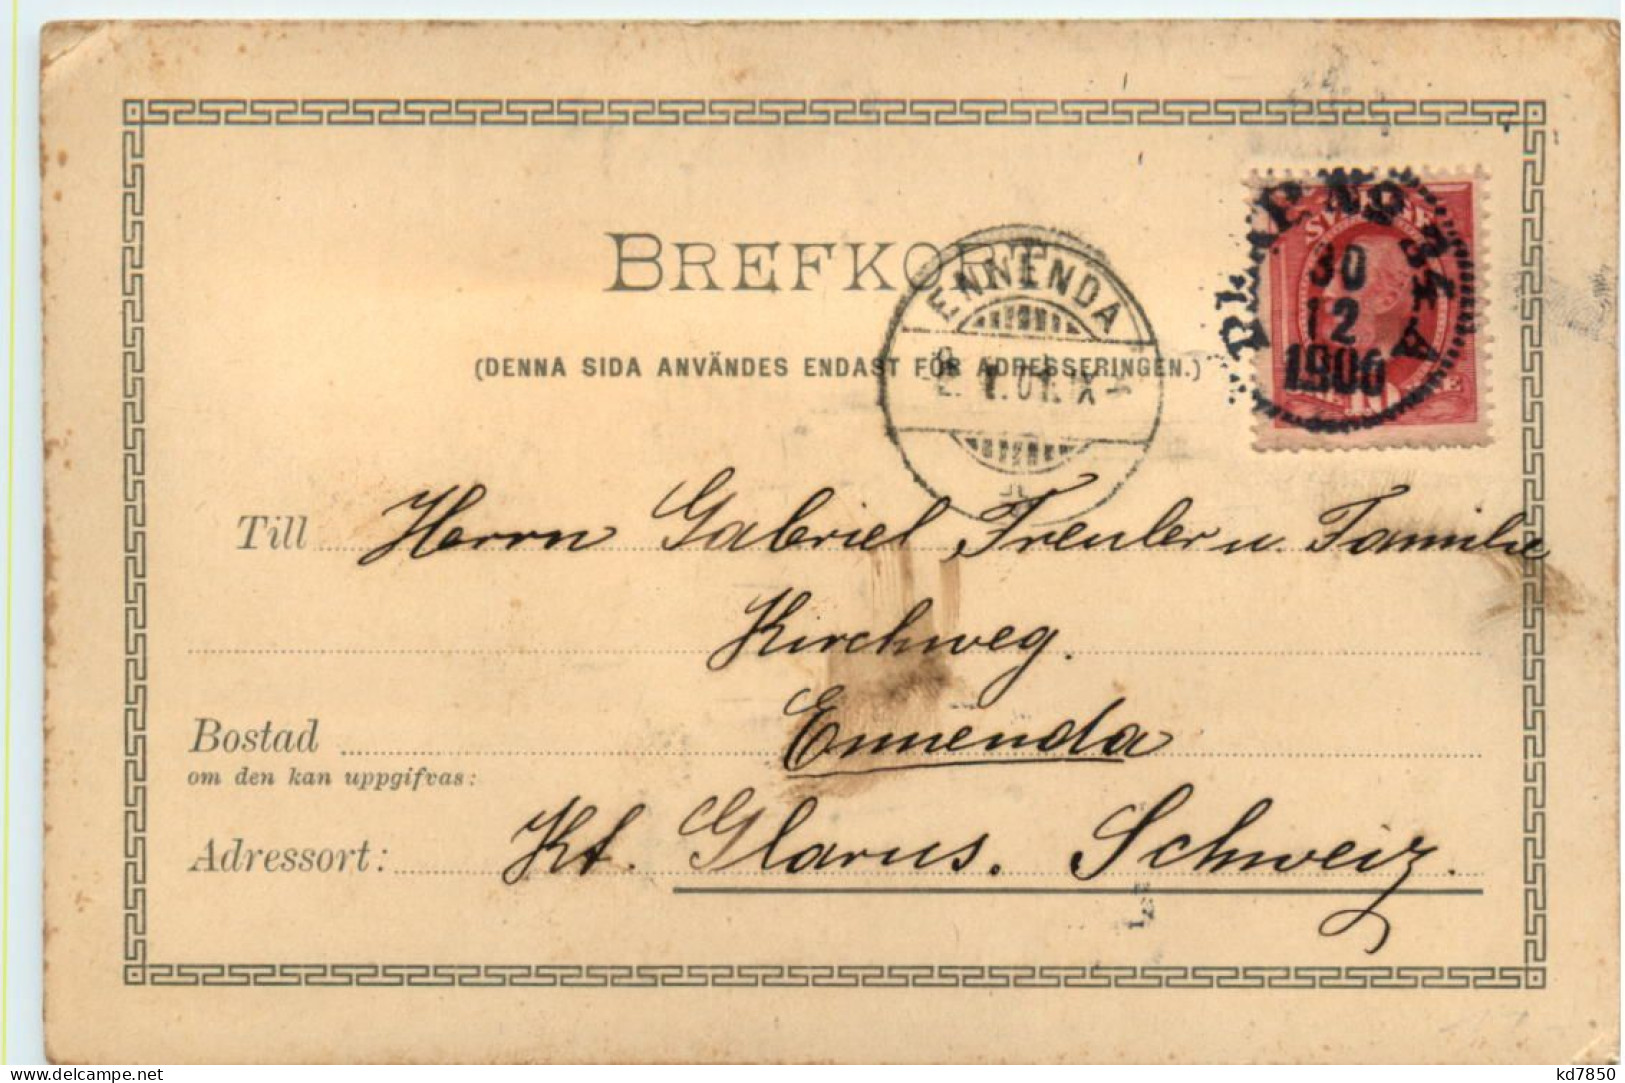 BREFKORT
(DENNA SIDA ANVÄNDES ENDAST FÖR ADRESSERINGEN.)
ENNENDA
SVERIGE
PLKP No 34 A
30
12
1900
10
Till Herrn Gabriel Freuler u. Familie
Kirchweg.
Bostad Ennenda
om den kan uppgifvas:
Adressort: Kt. Glarus. Schweiz.
www.delcampe.net
kd7850